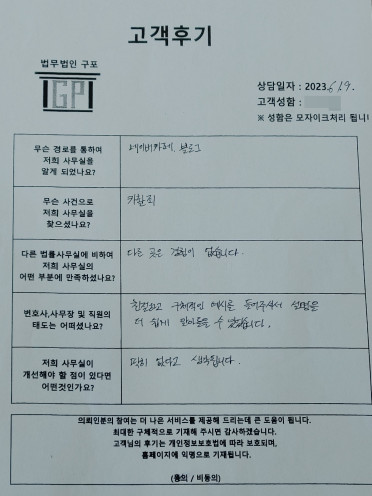 고객후기
법무법인 구포
GP
상담일자 : 2023. 6. 19.
고객성함 :
※ 성함은 모자이크처리 됩니
무슨 경로를 통하여
저희 사무실을
알게 되었나요?
네이버카페, 블로그
무슨 사건으로
저희 사무실을
찾으셨나요?
다른 법률사무실에 비하여
저희 사무실의
어떤 부분에 만족하셨나요?
다른 곳은 경험이 없습니다.
변호사,사무장 및 직원의
태도는 어떠셨나요?
친절하고 구체적인 예시를 들어주셔서 설명을
더 쉽게 알아들을 수 있었습니다.
저희 사무실이
개선해야 할 점이 있다면
어떤것인가요?
딱히 없다고 생각됩니다.
의뢰인분의 참여는 더 나은 서비스를 제공해 드리는데 큰 도움이 됩니다.
최대한 구체적으로 기재해 주시면 감사하겠습니다.
고객님의 후기는 개인정보보호법에 따라 보호되며,
홈페이지에 익명으로 기재됩니다.
(동의 / 비동의)